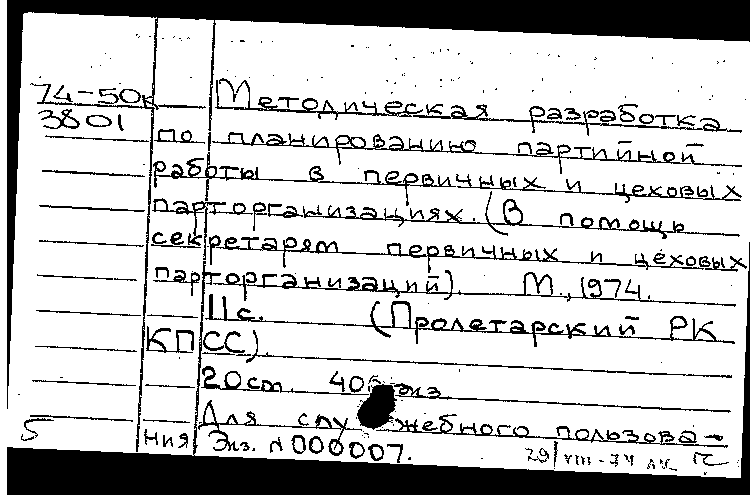 74-50к Методическая разработка
3801 по планированию партийной
работы в первичных и цеховых
парторганизациях. (В помощь
секретарям первичных и цеховых
парторганизаций). М., 1974.
11 с. (Пролетарский РК
КПСС).
20 см. 40 экз.
Для служебного пользова-
ния Экз. №000007.
5 29/VIII-74